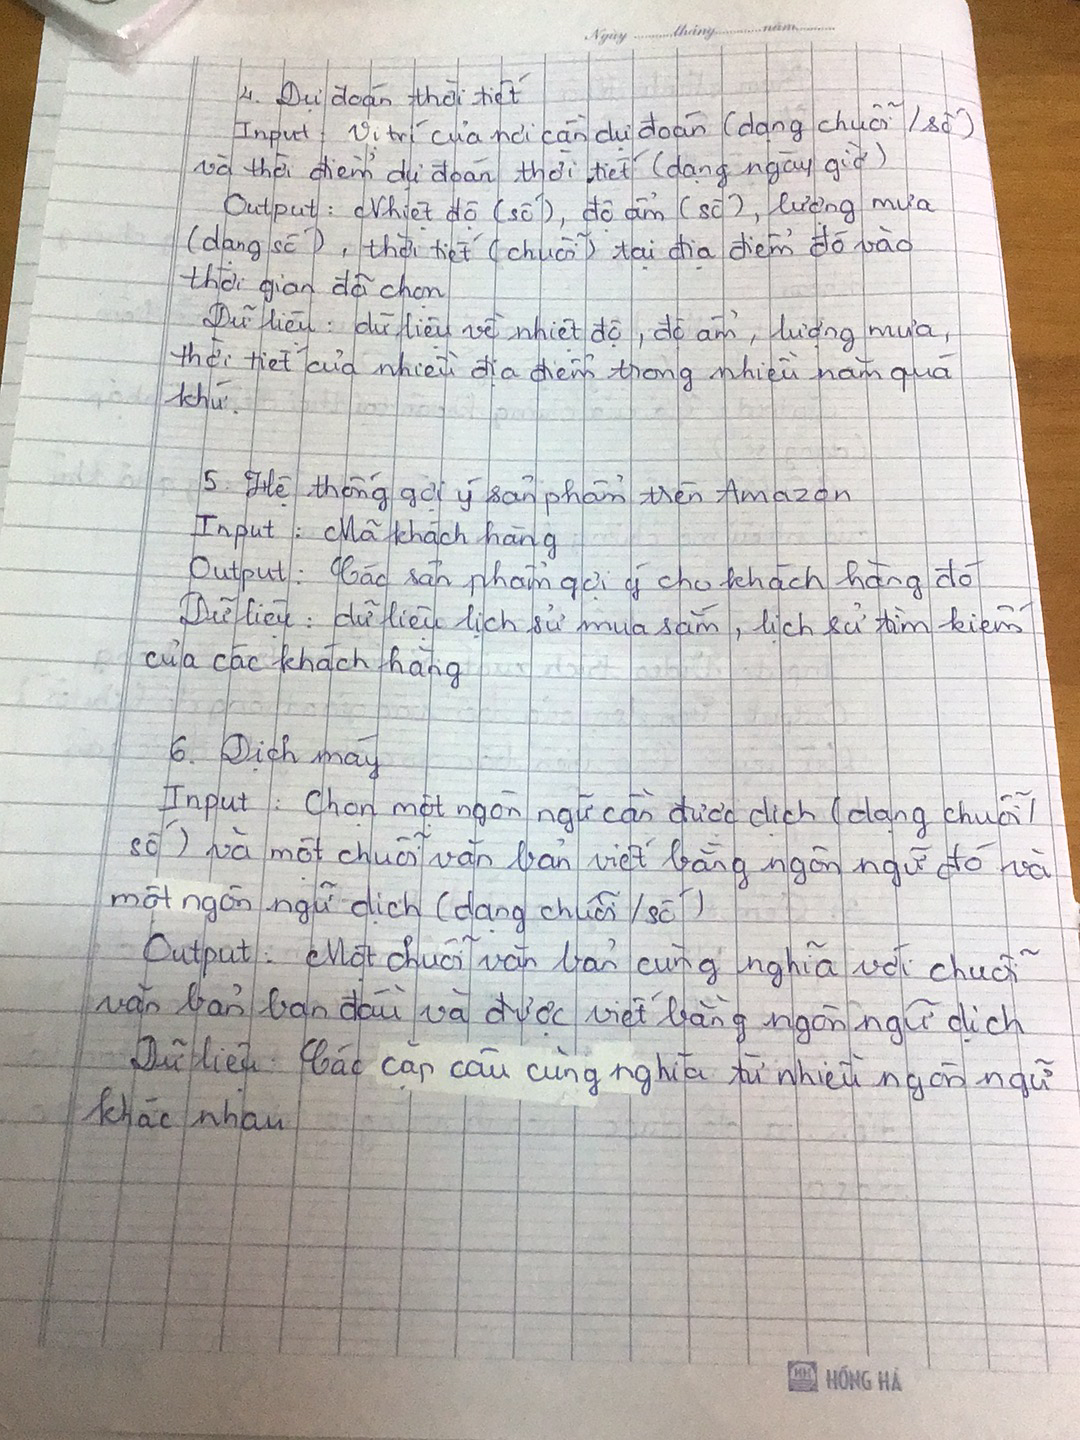 Ngày ..........tháng..........năm..........
4. Dự đoán thời tiết
Input : Vị trí của nơi cần dự đoán (dạng chuỗi / số)
và thời điểm dự đoán thời tiết (dạng ngày giờ)
Output : Nhiệt độ (số), độ ẩm (số), lượng mưa
(dạng số), thời tiết (chuỗi) tại địa điểm đó vào
thời gian đã chọn
Dữ liệu : dữ liệu về nhiệt độ, độ ẩm, lượng mưa,
thời tiết của nhiều địa điểm trong nhiều năm quá
khứ.
5. Hệ thống gợi ý sản phẩm trên Amazon
Input : Mã khách hàng
Output : Các sản phẩm gợi ý cho khách hàng đó
Dữ liệu : dữ liệu lịch sử mua sắm, lịch sử tìm kiếm
của các khách hàng
6. Dịch máy
Input : Chọn một ngôn ngữ cần được dịch (dạng chuỗi /
số) và một chuỗi văn bản viết bằng ngôn ngữ đó và
một ngôn ngữ dịch (dạng chuỗi / số)
Output : Một chuỗi văn bản cùng nghĩa với chuỗi
văn bản ban đầu và được viết bằng ngôn ngữ dịch
Dữ liệu : Các cặp câu cùng nghĩa từ nhiều ngôn ngữ
khác nhau
HH HỒNG HÀ